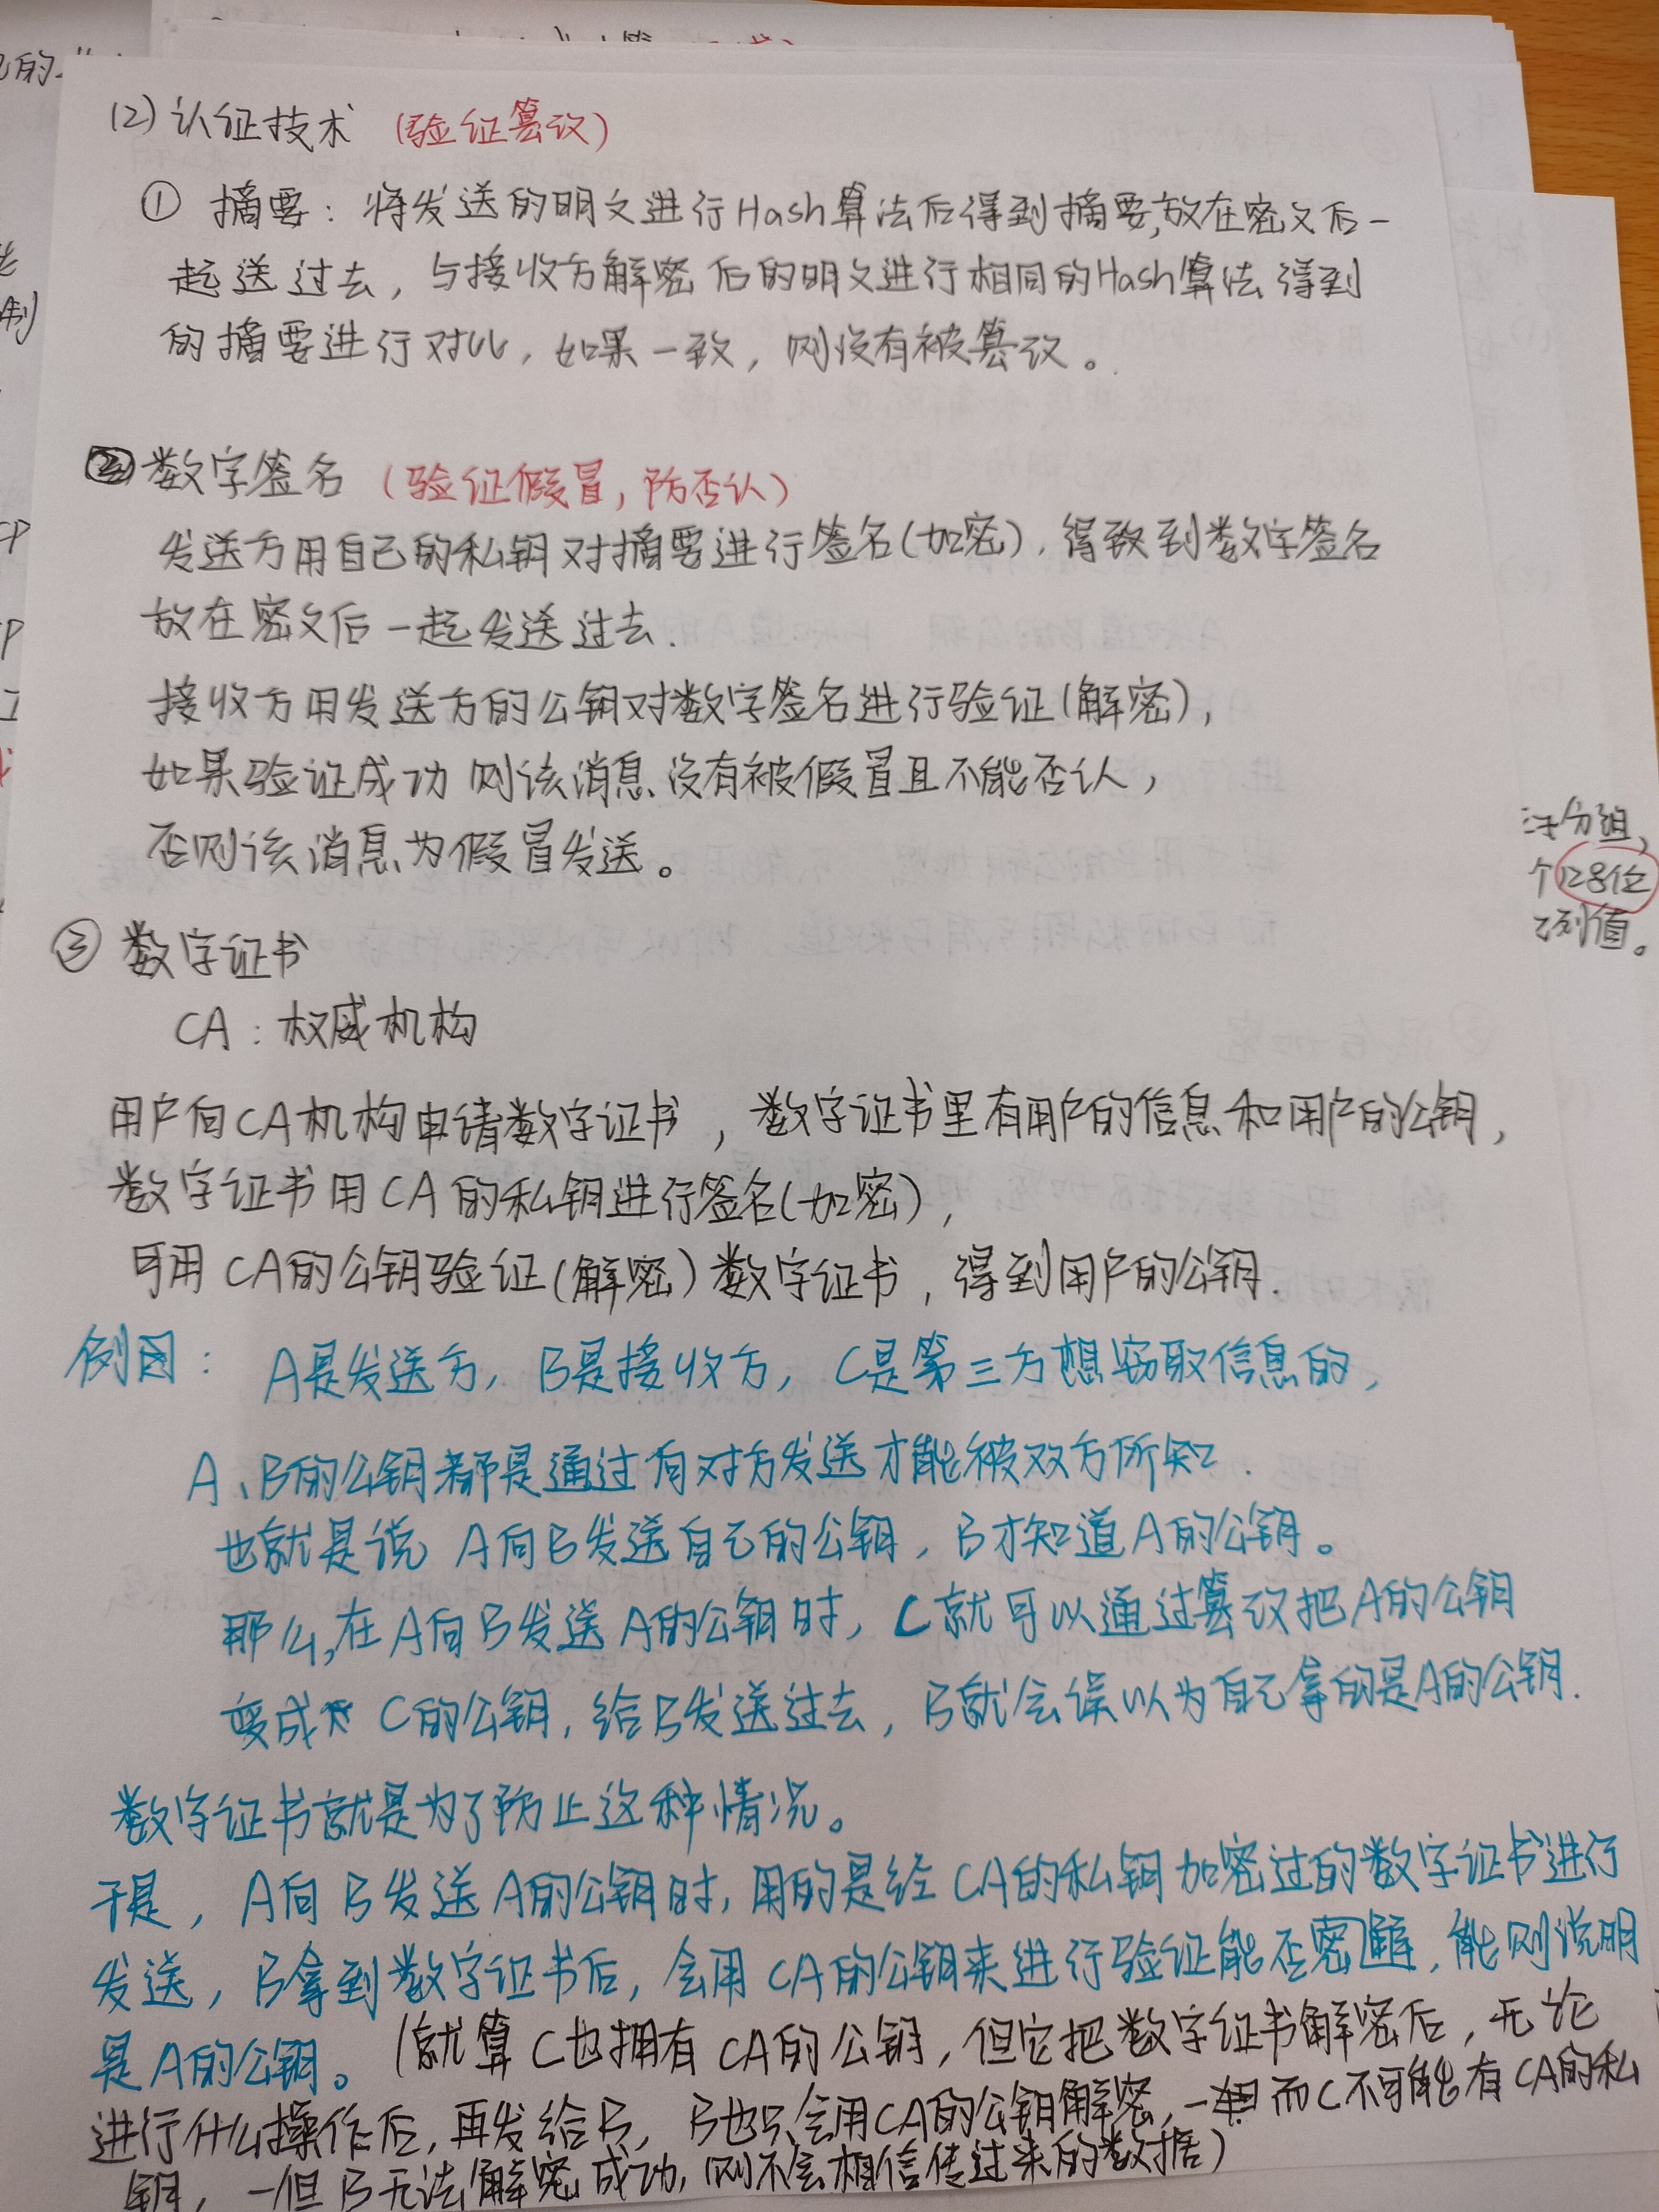 (2) 认证技术 (验证篡改)
① 摘要: 将发送的明文进行Hash算法后得到摘要,放在密文后一
起送过去, 与接收方解密后的明文进行相同的Hash算法得到
的摘要进行对比, 如果一致, 则没有被篡改。
② 数字签名 (验证假冒, 防否认)
发送方用自己的私钥对摘要进行签名(加密), 得到数字签名
放在密文后一起发送过去.
接收方用发送方的公钥对数字签名进行验证(解密),
如果验证成功 则该消息没有被假冒且不能否认,
否则该消息为假冒发送。
分组,
个128位
列值。
③ 数字证书
CA: 权威机构
用户向CA机构申请数字证书, 数字证书里有用户的信息和用户的公钥,
数字证书用CA的私钥进行签名(加密),
可用CA的公钥验证(解密)数字证书, 得到用户的公钥.
例图: A是发送方, B是接收方, C是第三方想窃取信息的,
A、B的公钥都是通过向对方发送才能被双方所知.
也就是说 A向B发送自己的公钥, B才知道A的公钥。
那么,在A向B发送A的公钥时, C就可以通过篡改把A的公钥
变成 C的公钥, 给B发送过去, B就会误以为自己拿的是A的公钥.
数字证书就是为了防止这种情况。
于是, A向B发送A的公钥时, 用的是经CA的私钥加密过的数字证书进行
发送, B拿到数字证书后, 会用CA的公钥来进行验证能否密, 能则说明
是A的公钥。(就算C也拥有CA的公钥, 但它把数字证书解密后, 无论
进行什么操作后, 再发给B, B也只会用CA的公钥解密, 而C不可能有CA的私
钥, 一但B无法解密成功, 则不会相信传过来的数据)